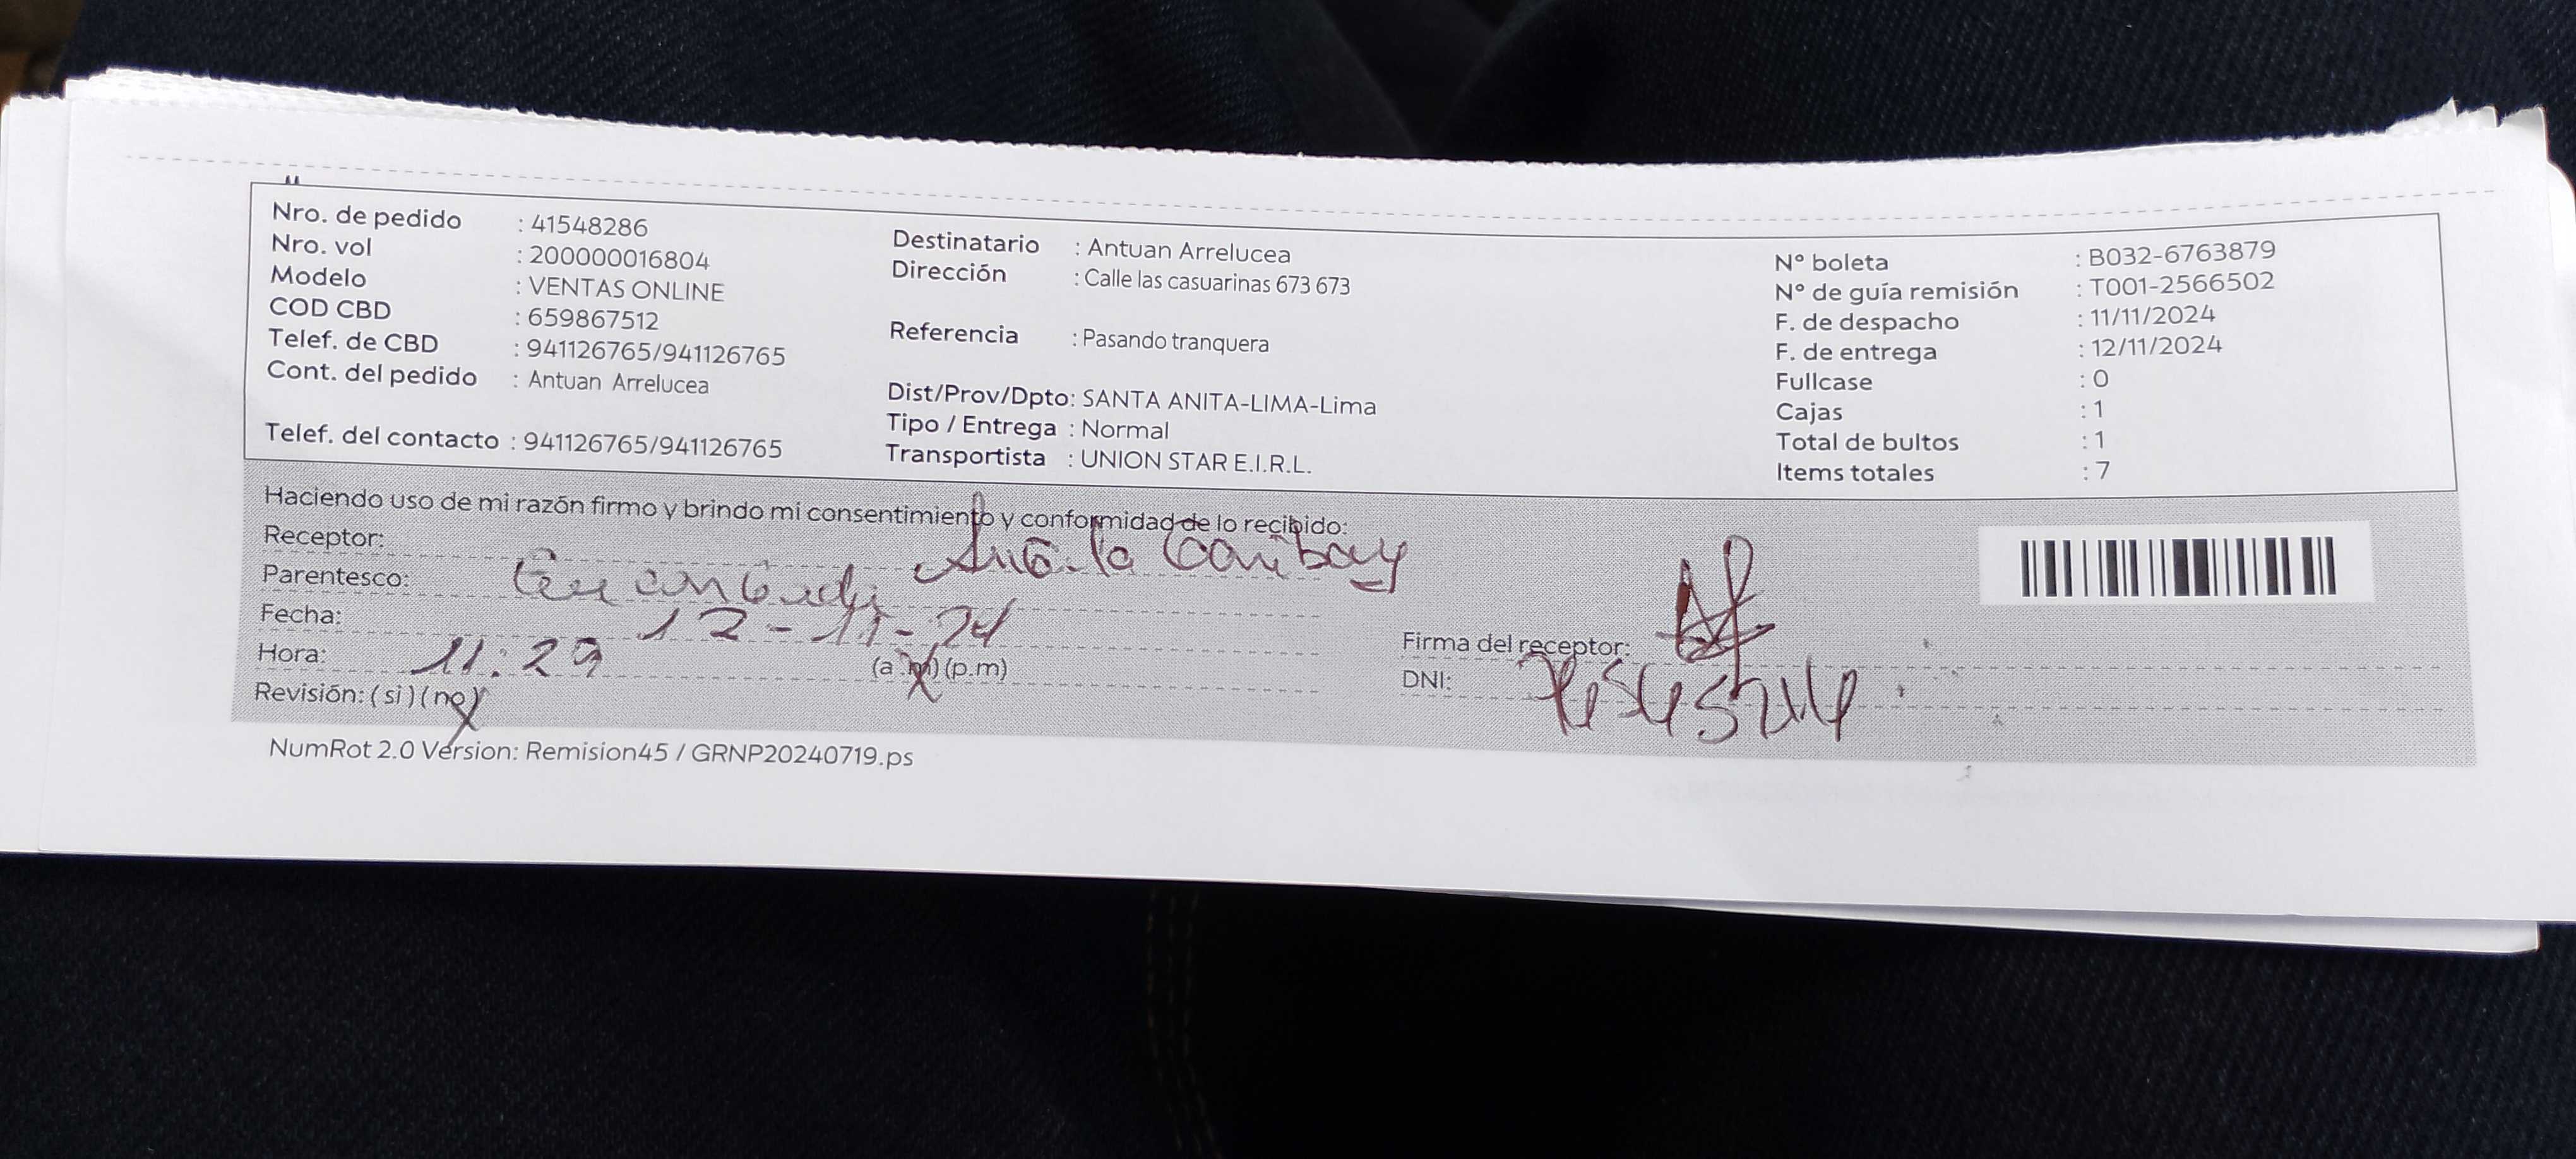 Nro. de pedido : 41548286
Nro. vol : 200000016804
Modelo : VENTAS ONLINE
COD CBD : 659867512
Telef. de CBD : 941126765/941126765
Cont. del pedido : Antuan Arrelucea
Telef. del contacto : 941126765/941126765
Destinatario : Antuan Arrelucea
Dirección : Calle las casuarinas 673 673
Referencia : Pasando tranquera
Dist/Prov/Dpto: SANTA ANITA-LIMA-Lima
Tipo / Entrega : Normal
Transportista : UNION STAR E.I.R.L.
N° boleta : B032-6763879
N° de guía remisión : T001-2566502
F. de despacho : 11/11/2024
F. de entrega : 12/11/2024
Fullcase : 0
Cajas : 1
Total de bultos : 1
Items totales : 7
Haciendo uso de mi razón firmo y brindo mi consentimiento y conformidad de lo recibido:
Receptor:
Parentesco:
Fecha: 12-11-24
Hora: 11:29 (a.m) (p.m)
Revisión: (si) (no)
Firma del receptor:
DNI:
NumRot 2.0 Version: Remision45 / GRNP20240719.ps